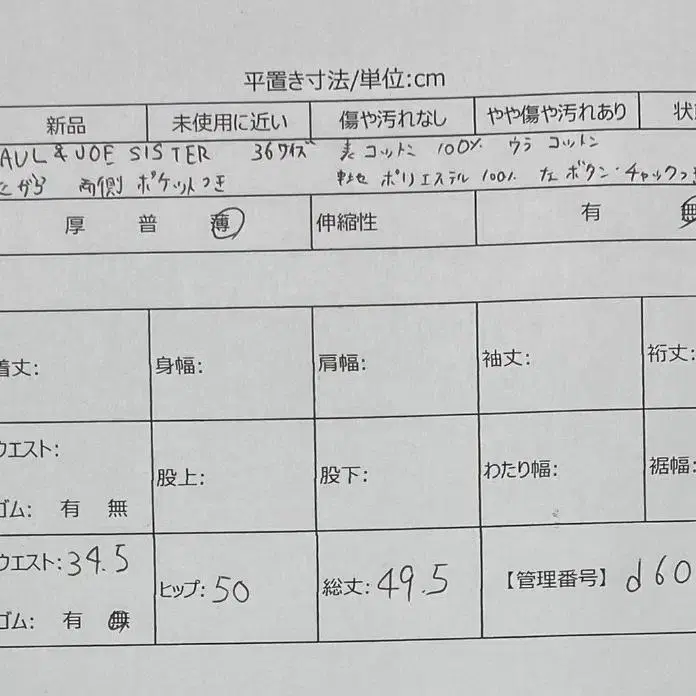 平置き寸法/単位:cm
新品 未使用に近い 傷や汚れなし やや傷や汚れあり 状
AUL & JOE SISTER 36サイズ 表 コットン 100% ウラ コットン
がら 両側 ポケットつき ポリエステル 100% 左 ボタン・チャックつ
厚 普 薄 伸縮性 有 無
着丈: 身幅: 肩幅: 袖丈: 裄丈:
ウエスト: 股上: 股下: わたり幅: 裾幅:
ゴム: 有 無
ウエスト: 34.5 ヒップ: 50 総丈: 49.5 【管理番号】 d60
ゴム: 有 無